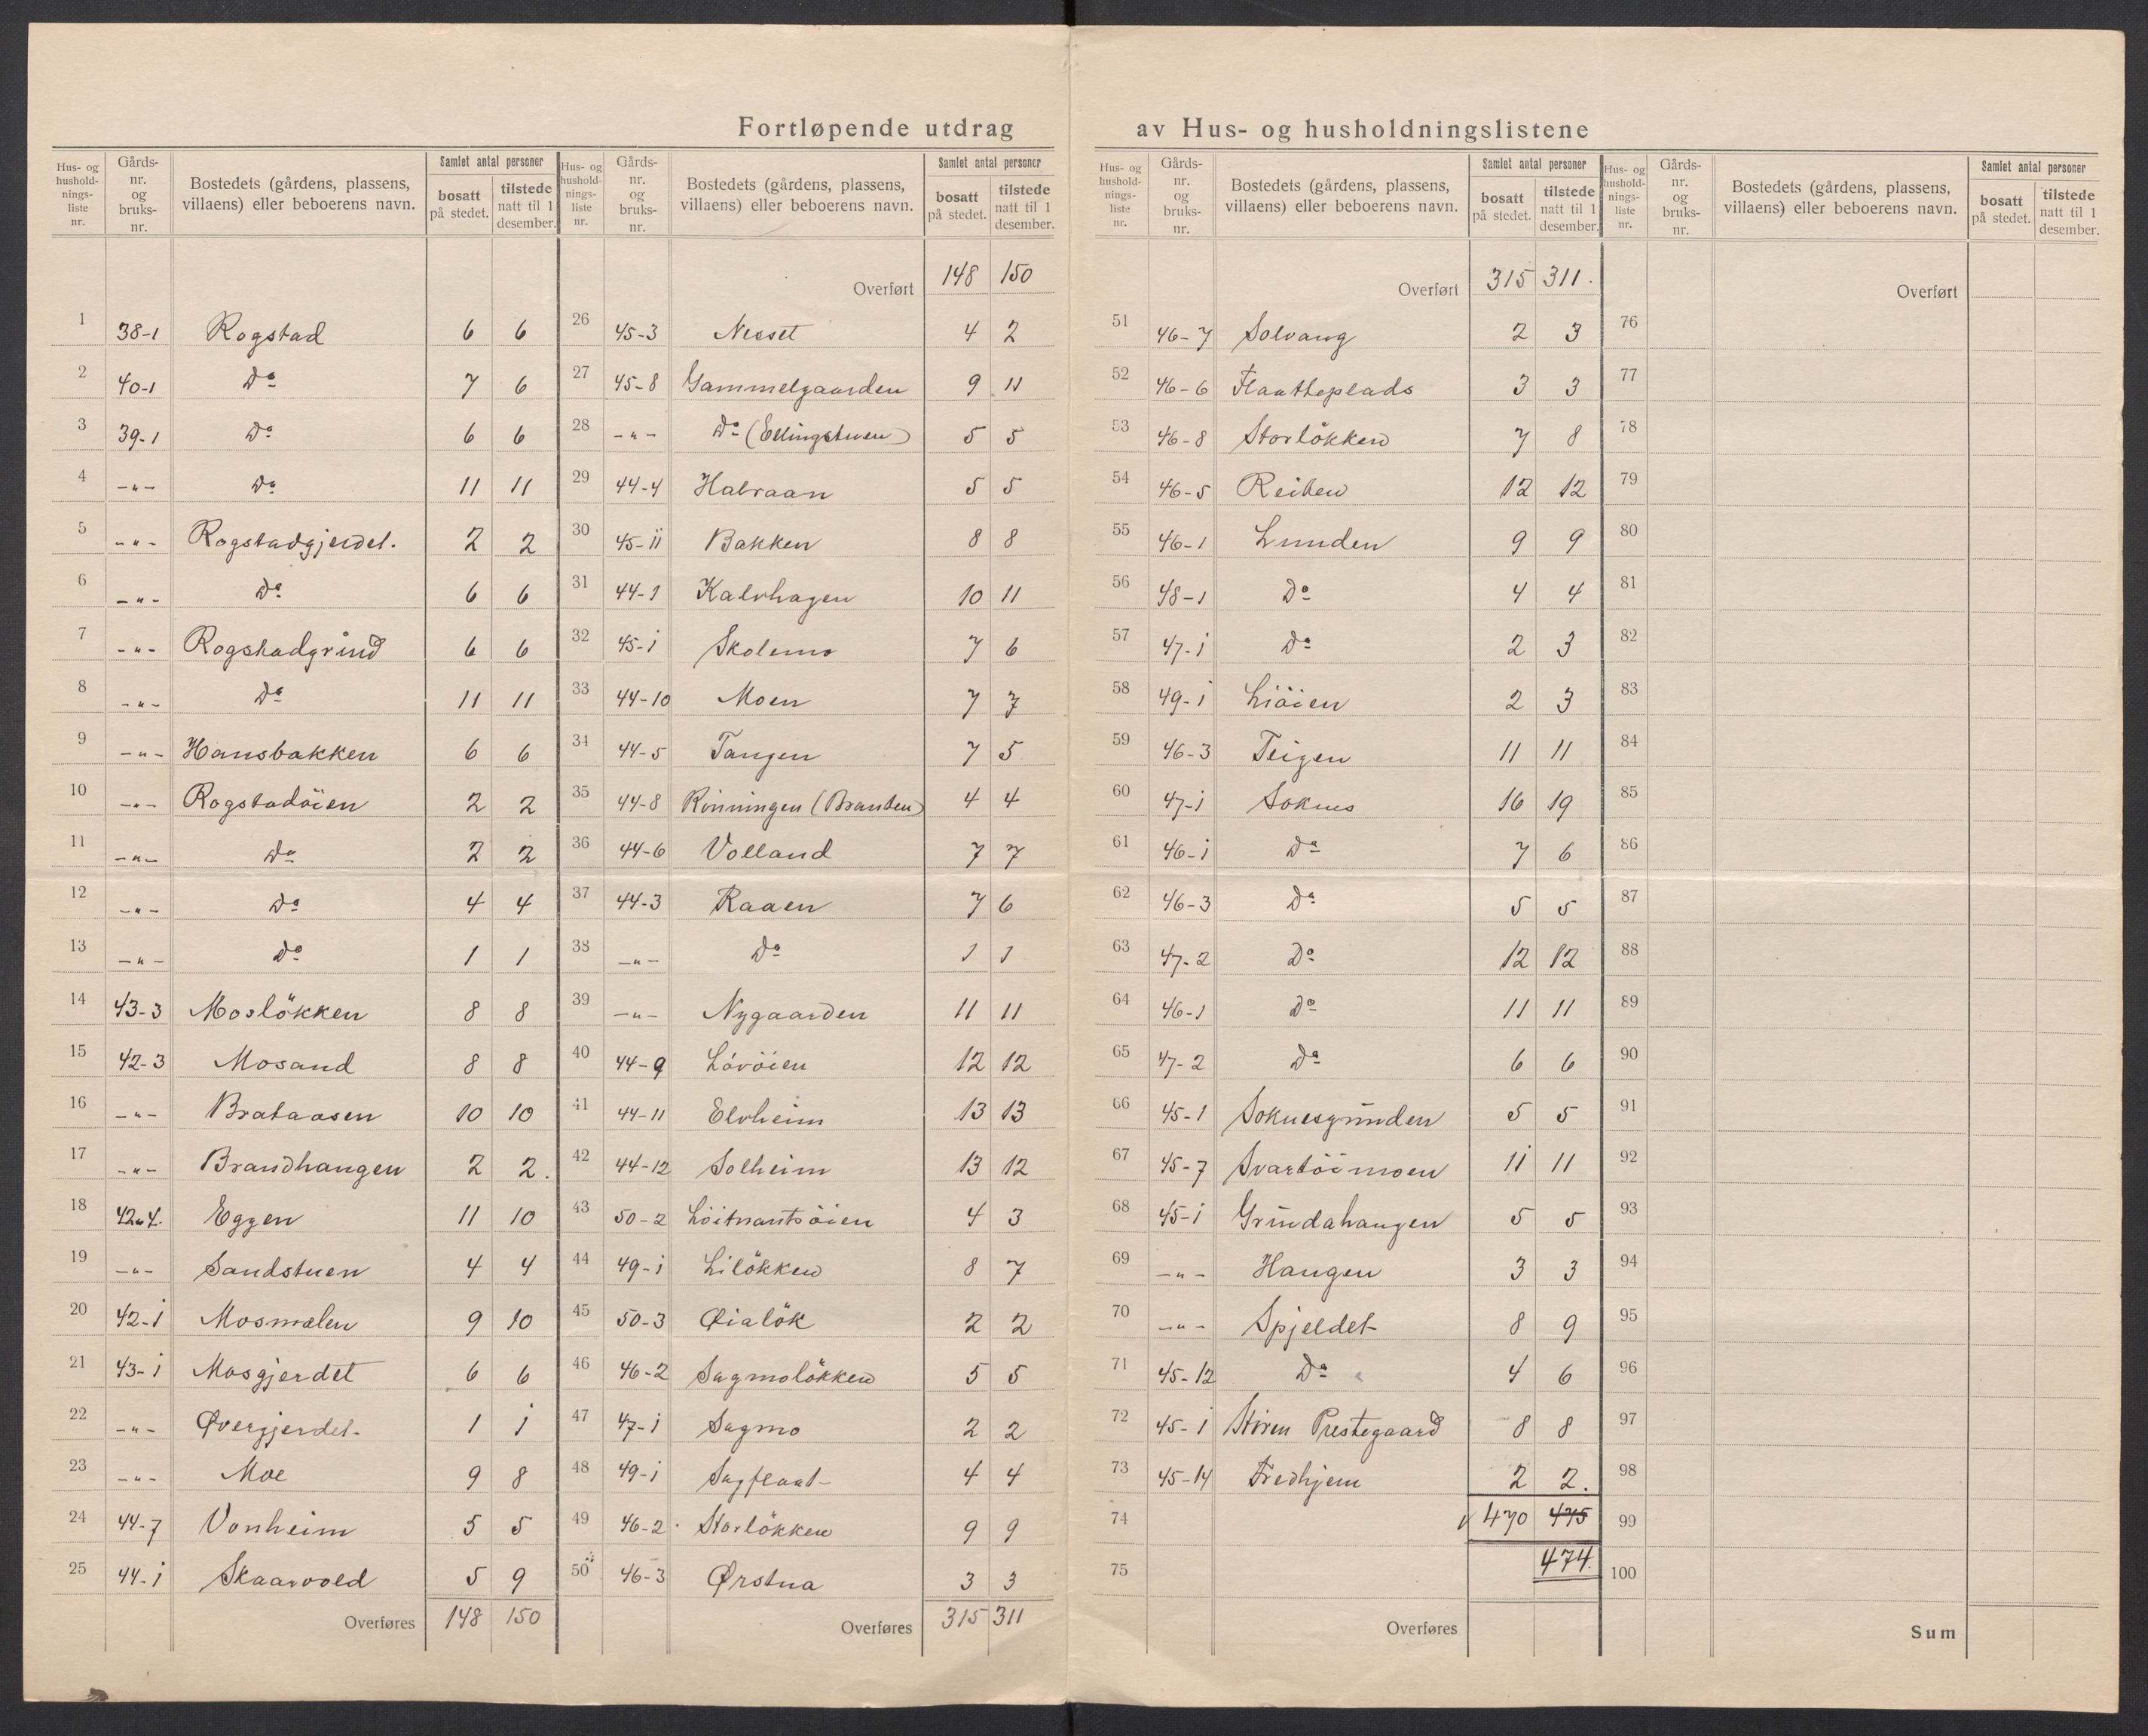 Fortløpende utdrag av Hus- og husholdningslistene
Hus- og husholdnings-liste nr. | Gårds-nr. og bruks-nr. | Bostedets (gårdens, plassens, villaens) eller beboerens navn. | Samlet antal personer | bosatt på stedet. | tilstede natt til 1 desember.
1 38-1 Rogstad 6 6
2 40-1 Do 7 6
3 39-1 Do 6 6
4 -"- Do 11 11
5 -"- Rogstadgjerdet. 2 2
6 -"- Do 6 6
7 -"- Rogstadgrind 6 6
8 -"- Do 11 11
9 -"- Hansbakken 6 6
10 -"- Rogstadöien 2 2
11 -"- Do 2 2
12 -"- Do 4 4
13 -"- Do 1 1
14 43-3 Moslökken 8 8
15 42-3 Mosand 8 8
16 -"- Brataasen 10 10
17 -"- Brandhaugen 2 2.
18 42-4. Eggen 11 10
19 -"- Sandstuen 4 4
20 42-1 Mosmælen 9 10
21 43-1 Mosgjerdet 6 6
22 -"- Øvergjerdet- 1 1
23 -"- Moe 9 8
24 44-7 Vonheim 5 5
25 44-1 Skaarvold 5 9
Overføres 148 150
Hus- og husholdnings-liste nr. | Gårds-nr. og bruks-nr. | Bostedets (gårdens, plassens, villaens) eller beboerens navn. | Samlet antal personer | bosatt på stedet. | tilstede natt til 1 desember.
Overført 148 150
26 45-3 Nesset 4 2
27 45-8 Gammelgaarden 9 11
28 -"- Do (Ellingstuen) 5 5
29 44-4 Halvaan 5 5
30 45-11 Bakken 8 8
31 44-1 Kalvhagen 10 11
32 45-1 Skolemo 7 6
33 44-10 Moen 7 7
34 44-5 Tangen 7 5
35 44-8 Rinningen (Branden) 4 4
36 44-6 Volland 7 7
37 44-3 Raaen 7 6
38 -"- Do 1 1
39 -"- Nygaarden 11 11
40 44-9 Lövöien 12 12
41 44-11 Elvheim 13 13
42 44-12 Solheim 13 12
43 50-2 Löitnantsöien 4 3
44 49-1 Lilökken 8 7
45 50-3 Øialök 2 2
46 46-2 Sagmolökken 5 5
47 47-1 Sagmo 2 2
48 49-1 Sagflaat- 4 4
49 46-2 Storlökken 9 9
50 46-3 Ørstua 3 3
Overføres 315 311
Hus- og husholdnings-liste nr. | Gårds-nr. og bruks-nr. | Bostedets (gårdens, plassens, villaens) eller beboerens navn. | Samlet antal personer | bosatt på stedet. | tilstede natt til 1 desember.
Overført 315 311.
51 46-7 Solvang 2 3
52 46-6 Flaatteplads 3 3
53 46-8 Storlökken 7 8
54 46-5 Reiten 12 12
55 46-1 Lunden 9 9
56 48-1 Do 4 4
57 47-1 Do 2 3
58 49-1 Liöien 2 3
59 46-3 Teigen 11 11
60 47-1 Soknes 16 19
61 46-1 Do 7 6
62 46-3 Do 5 5
63 47-2 Do 12 12
64 46-1 Do 11 11
65 47-2 Do 6 6
66 45-1 Soknesgrinden 5 5
67 45-7 Svartöimoen 11 11
68 45-1 Grindahaugen 5 5
69 -"- Haugen 3 3
70 -"- Spjeldet 8 9
71 45-12 Do 4 6
72 45-1 Stören Prestegaard 8 8
73 45-14 Fredhjem 2 2.
74 470 475
75 474.
Overføres
Hus- og husholdnings-liste nr. | Gårds-nr. og bruks-nr. | Bostedets (gårdens, plassens, villaens) eller beboerens navn. | Samlet antal personer | bosatt på stedet. | tilstede natt til 1 desember.
Overført
76
77
78
79
80
81
82
83
84
85
86
87
88
89
90
91
92
93
94
95
96
97
98
99
100
Sum